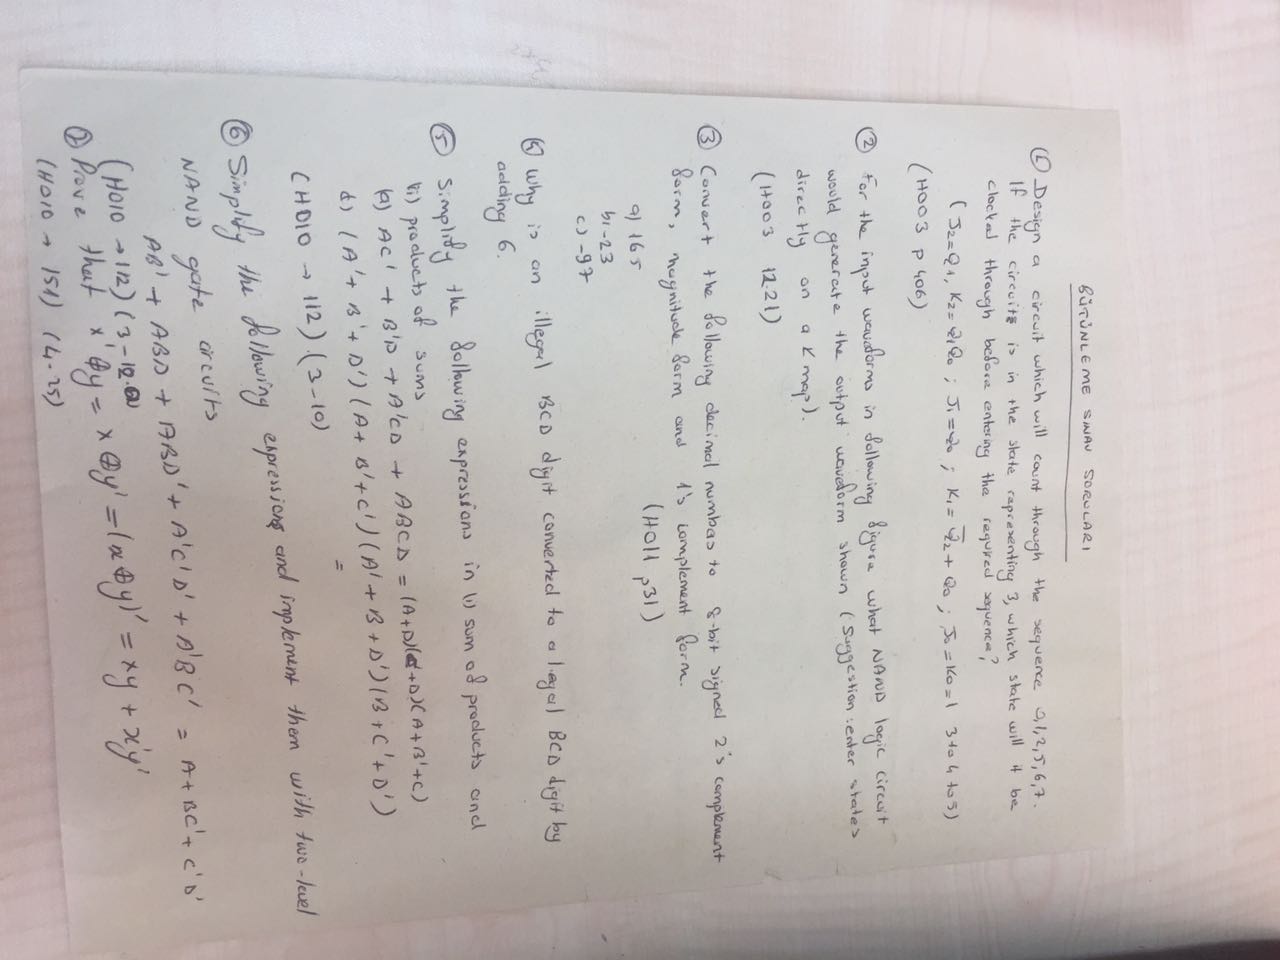 BÜTÜNLEME SINAV SORULARI
① Design a circuit which will count through the sequence 0,1,2,5,6,7.
If the circuits is in the state representing 3, which state will it be
clocked through before entering the required sequence?
(J₂=Q₁, K₂=Q₁Q₀ ; J₁=Q₀ ; K₁=Q̅₂+Q₀ ; J₀=K₀=1 3 to 4 to 5)
(H003 p 406)
② For the input waveforms in following figure what NAND logic circuit
would generate the output waveform shown (Suggestion: enter states
directly on a K map).
(H003 12.21)
③ Convert the following decimal numbers to 8-bit signed 2's complement
form, magnitude form and 1's complement form.
(H011 p31)
a) 165
b) -23
c) -97
④ Why is an illegal BCD digit converted to a legal BCD digit by
adding 6.
⑤ Simplify the following expressions in (i) sum of products and
(ii) products of sums
(a) AC' + B'D + A'CD + ABCD = (A+D)(C'+D)(A+B'+C)
d) (A'+B'+D')(A+B'+C')(A'+B+D')(B+C'+D')
=
(H010 → 112) (3-10)
⑥ Simplify the following expressions and implement them with two-level
NAND gate circuits
AB' + ABD + ABD' + A'C'D' + A'BC' = A+BC'+C'D'
(H010 → 112) (3-12 a
Prove that x'⊕y = x⊕y' = (x⊕y)' = xy + x'y'
(H010 → 151) (4-25)